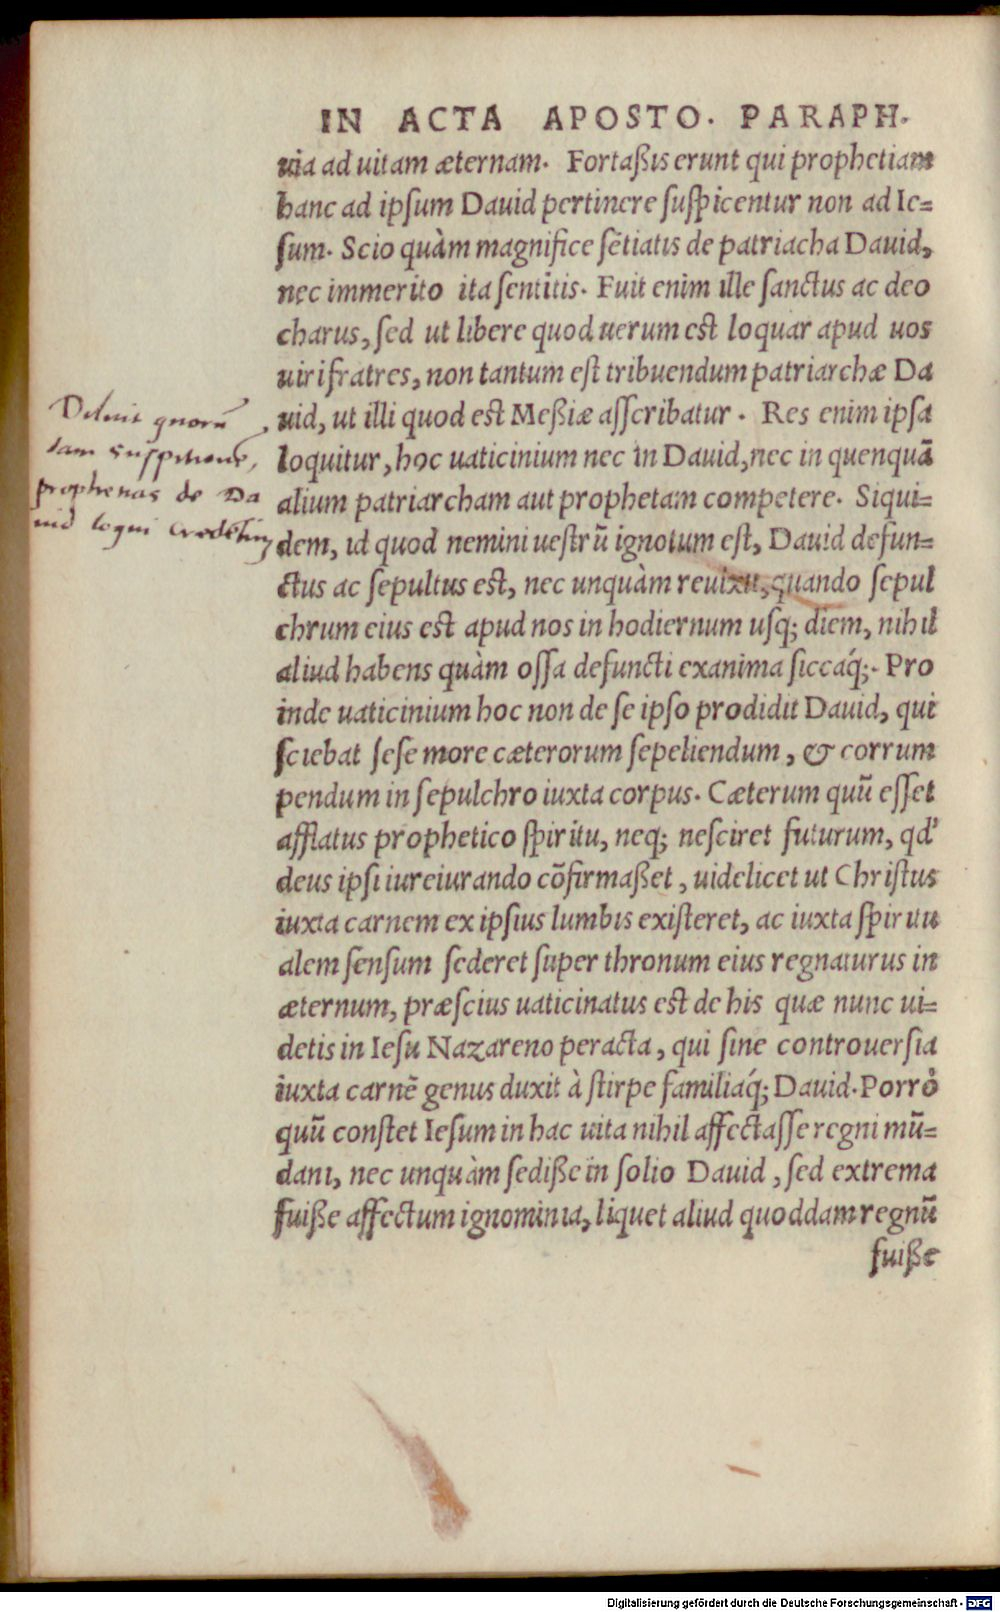 IN ACTA APOSTO. PARAPH.
uia ad uitam æternam. Fortaßis erunt qui prophetiam
hanc ad ipsum Dauid pertinere suspicentur non ad Ie=
sum. Scio quàm magnifice sẽtiatis de patriacha Dauid,
nec immerito ita sentitis. Fuit enim ille sanctus ac deo
charus, sed ut libere quod uerum est loquar apud uos
uiri fratres, non tantum est tribuendum patriarchæ Da
uid, ut illi quod est Meßiæ asscribatur. Res enim ipsa
loquitur, hoc uaticinium nec in Dauid, nec in quenquã
alium patriarcham aut prophetam competere. Siqui=
dem, id quod nemini uestrũ ignotum est, Dauid defun=
ctus ac sepultus est, nec unquàm reuixit, quando sepul
chrum eius est apud nos in hodiernum usq; diem, nihil
aliud habens quàm ossa defuncti exanima siccaq́;. Pro
inde uaticinium hoc non de se ipso prodidit Dauid, qui
sciebat sese more cæterorum sepeliendum, & corrum
pendum in sepulchro iuxta corpus. Cæterum quũ esset
afflatus prophetico spiritu, neq; nesciret futurum, qd'
deus ipsi iureiurando cõfirmaßet, uidelicet ut Christus
iuxta carnem ex ipsius lumbis existeret, ac iuxta spiritu
alem sensum sederet super thronum eius regnaturus in
æternum, præscius uaticinatus est de his quæ nunc ui=
detis in Iesu Nazareno peracta, qui sine controuersia
iuxta carnẽ genus duxit à stirpe familiaq́; Dauid. Porrò
quũ constet Iesum in hac uita nihil affectasse regni mũ=
dani, nec unquàm sediße in solio Dauid, sed extrema
fuiße affectum ignominia, liquet aliud quoddam regnũ
fuiße
quorũ
dam suspitionẽ,
prophetias de Da
uid loqui
Digitalisierung gefördert durch die Deutsche Forschungsgemeinschaft - DFG